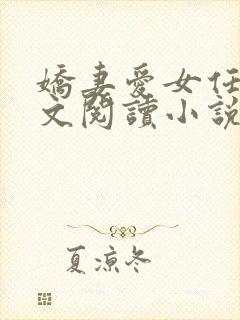 嬌妻愛女任
文閱讀小說
夏涼冬